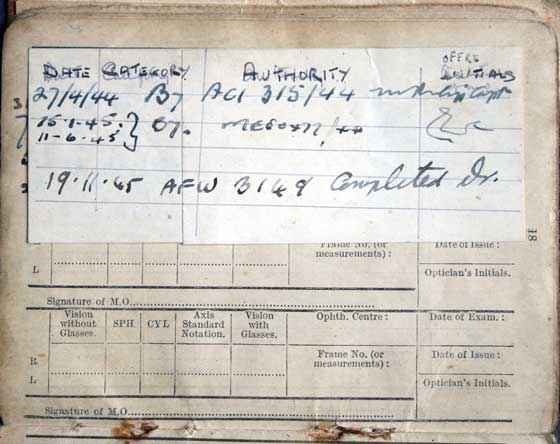 OFFRS
DATE CATEGORY AUTHORITY INITIALS
27/4/44 B7 ACI 315/44 Capt
15.1.45. } B7.
11-6-45
19.11.45 AFW 3149 Completed Dr.
18
Frame No. (or measurements) : Date of Issue :
L Optician's Initials.
Signature of M.O.
Vision without Glasses. SPH. CYL. Axis Standard Notation. Vision with Glasses. Ophth. Centre : Date of Exam. :
R Frame No. (or measurements) : Date of Issue :
L Optician's Initials.
Signature of M.O.